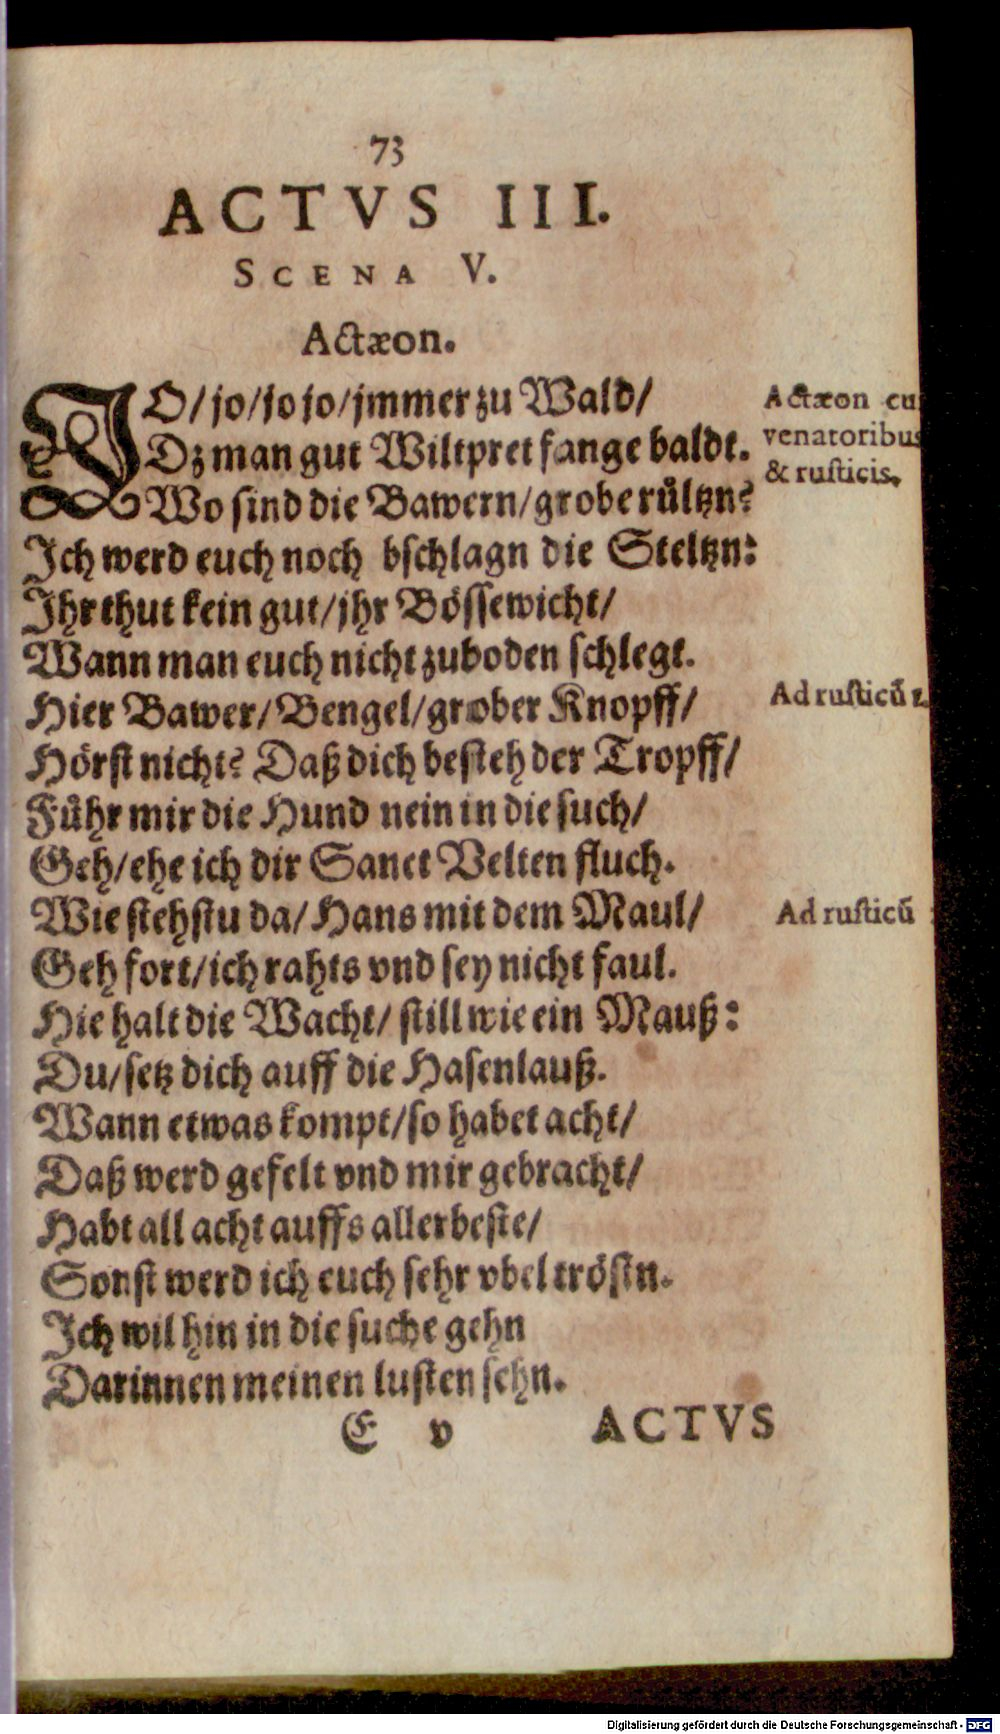 73
ACTVS III.
SCENA V.
Actæon.
JO/ jo/ jo jo/ jmmer zu Wald/
Dz man gut Wiltpret fange baldt.
Wo sind die Bawern/ grobe růltzn?
Ich werd euch noch bschlagn die Steltzn:
Ihr thut kein gut/ jhr Bössewicht/
Wann man euch nicht zuboden schlegt.
Hier Bawer/ Bengel/ grober Knopff/
Hörst nicht? Daß dich besteh der Tropff/
Fůhr mir die Hund nein in die such/
Geh/ ehe ich dir Sanct Velten fluch.
Wie stehstu da/ Hans mit dem Maul/
Geh fort/ ich rahts vnd sey nicht faul.
Hie halt die Wacht/ still wie ein Mauß:
Du/ setz dich auff die Hasenlauß.
Wann etwas kompt/ so habet acht/
Daß werd gefelt vnd mir gebracht/
Habt all acht auffs allerbeste/
Sonst werd ich euch sehr vbel tröstn.
Ich wil hin in die suche gehn
Darinnen meinen lusten sehn.
E v ACTVS
Actæon cu
venatoribus
& rusticis.
Ad rusticū 1.
Ad rusticū
Digitalisierung gefördert durch die Deutsche Forschungsgemeinschaft - DFG